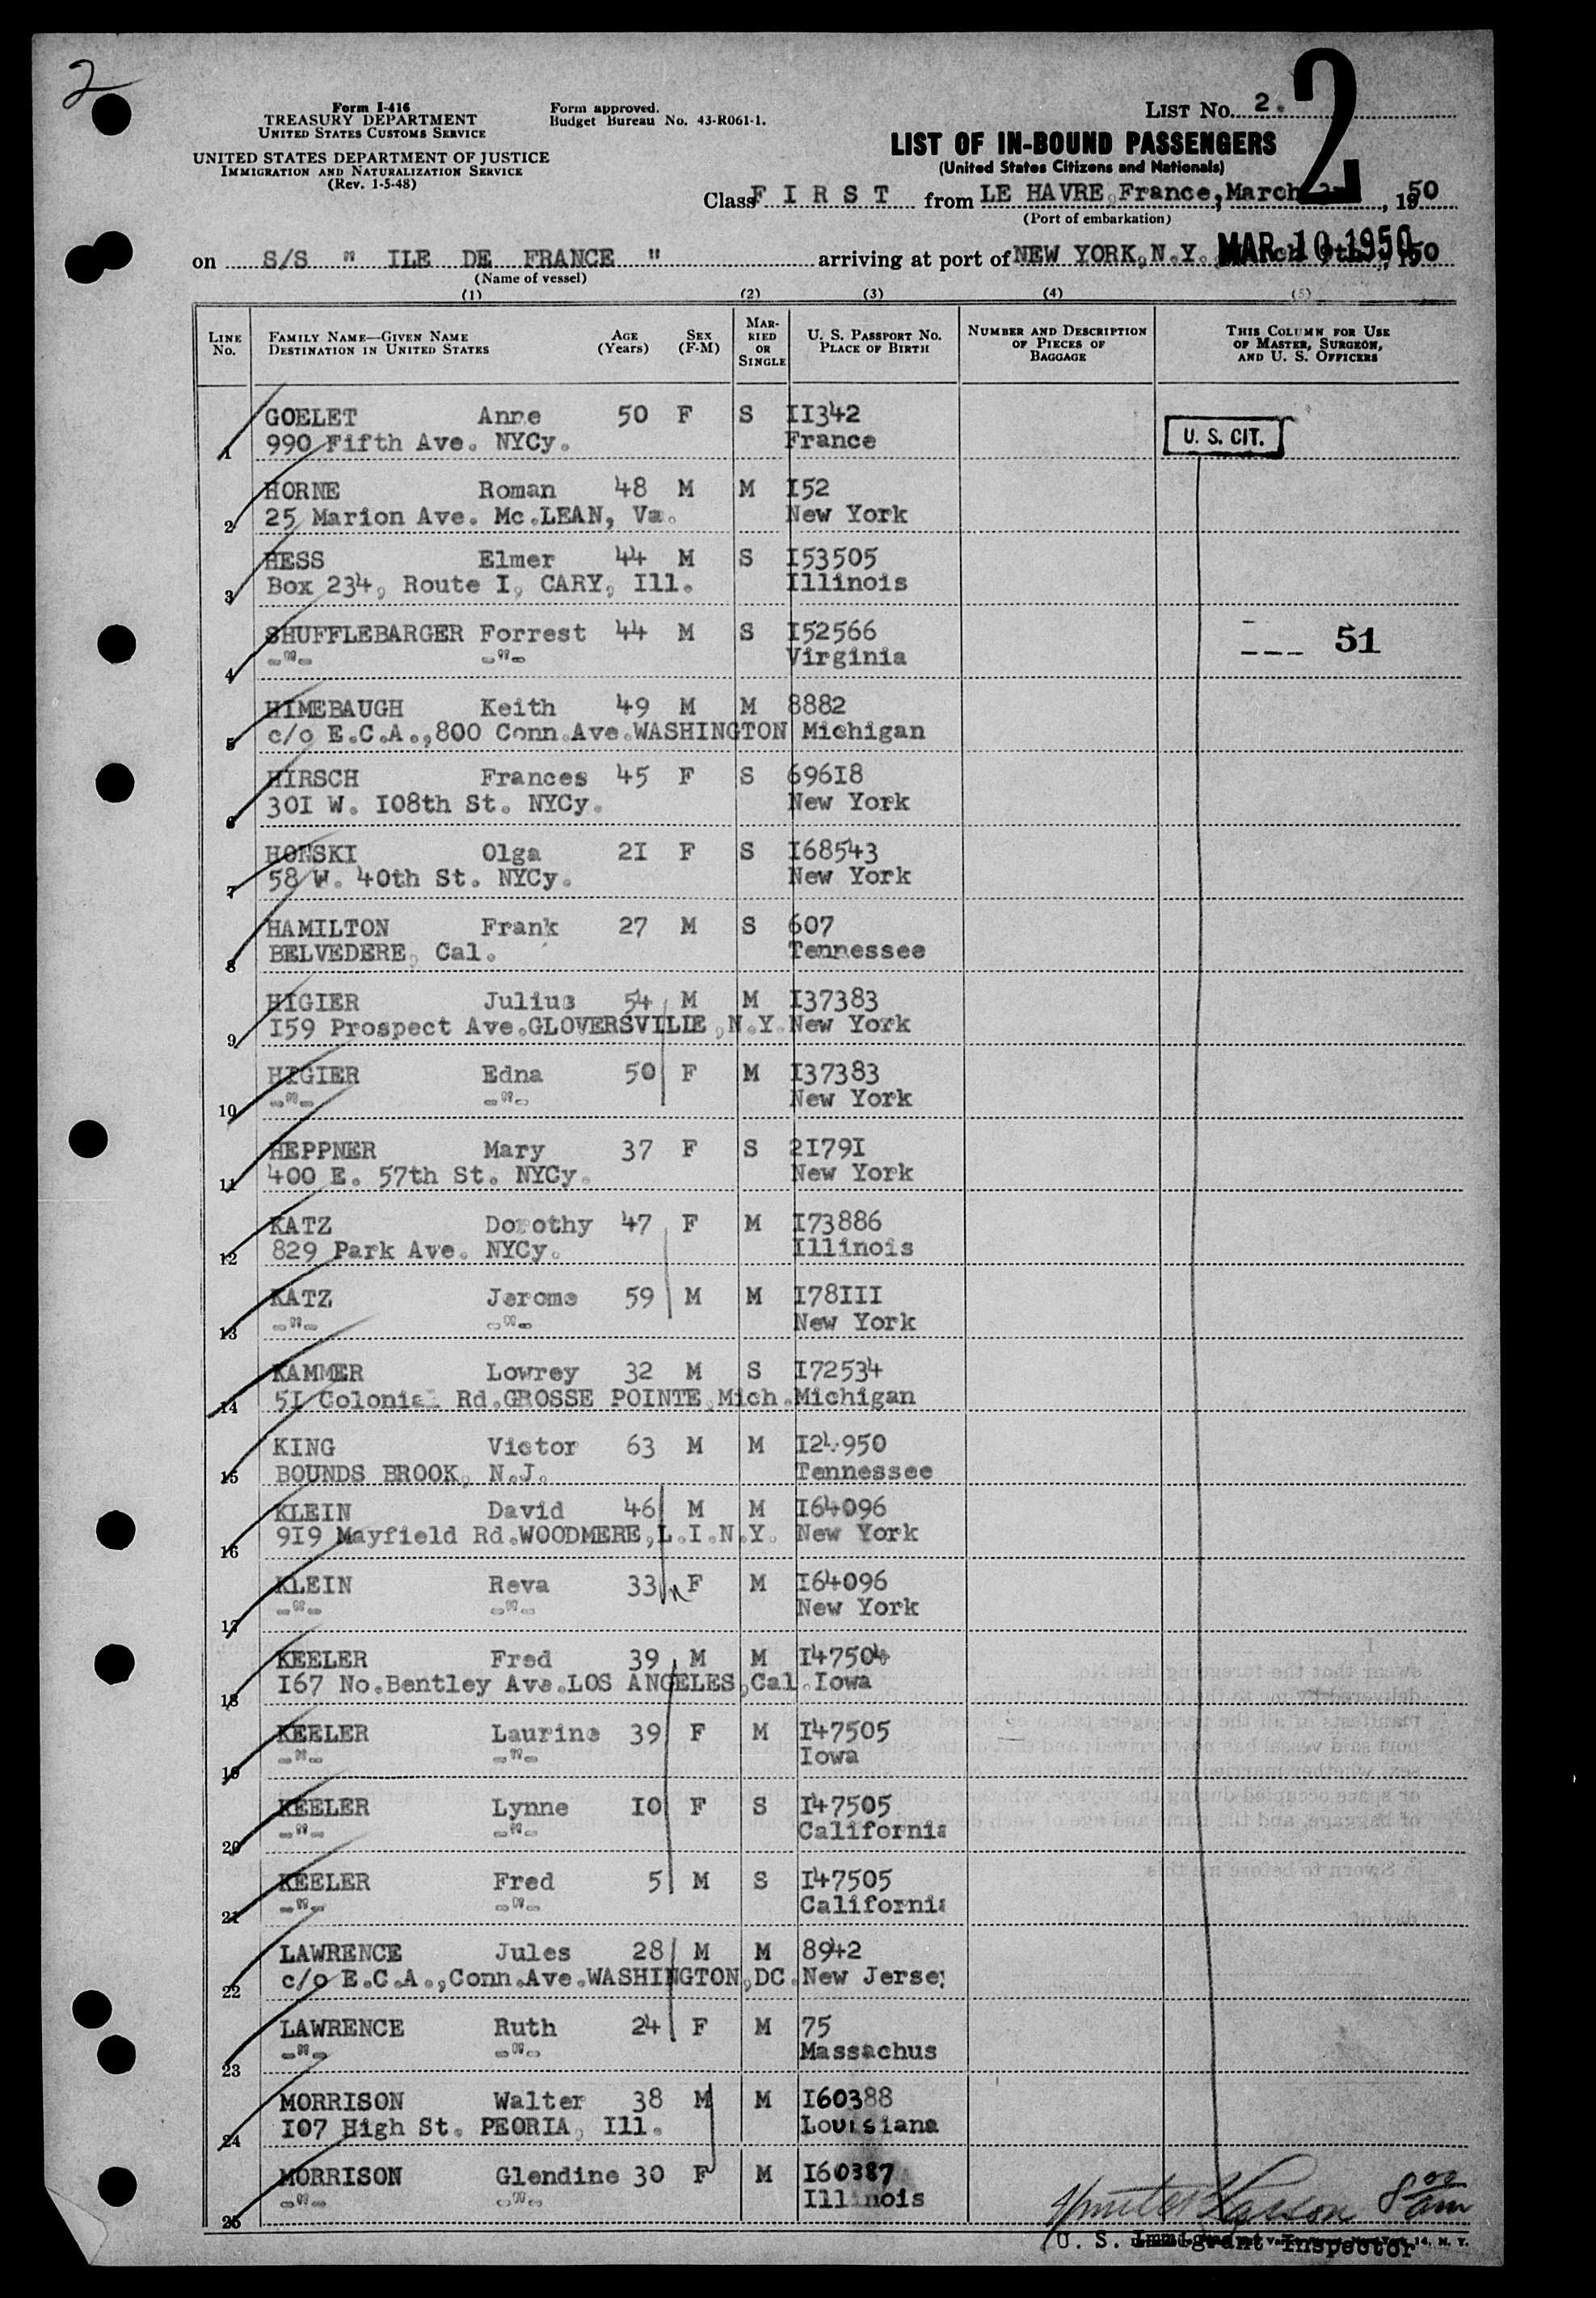 2
Form I-416
TREASURY DEPARTMENT
UNITED STATES CUSTOMS SERVICE
UNITED STATES DEPARTMENT OF JUSTICE
IMMIGRATION AND NATURALIZATION SERVICE
(Rev. 1-5-48)
Form approved.
Budget Bureau No. 43-R061-1.
LIST No. 2.
2
LIST OF IN-BOUND PASSENGERS
(United States Citizens and Nationals)
Class F I R S T from LE HAVRE, France, March , 1950
(Port of embarkation)
on S/S " ILE DE FRANCE " arriving at port of NEW YORK, N.Y. MAR 10 1950 March 9th, 1950
(Name of vessel)
(1) (2) (3) (4) (5)
LINE No. FAMILY NAME—GIVEN NAME DESTINATION IN UNITED STATES AGE (Years) SEX (F-M) MARRIED OR SINGLE U. S. PASSPORT NO. PLACE OF BIRTH NUMBER AND DESCRIPTION OF PIECES OF BAGGAGE THIS COLUMN FOR USE OF MASTER, SURGEON, AND U. S. OFFICERS
GOELET Anne 50 F S II342
1 990 Fifth Ave. NYCy. France U. S. CIT.
HORNE Roman 48 M M I52
2 25 Marion Ave. Mc.LEAN, Va. New York
HESS Elmer 44 M S I53505
3 Box 234, Route I, CARY, Ill. Illinois
SHUFFLEBARGER Forrest 44 M S I52566 51
4 -"- -"- Virginia
HIMEBAUGH Keith 49 M M 8882
5 c/o E.C.A.,800 Conn.Ave.WASHINGTON Michigan
HIRSCH Frances 45 F S 696I8
6 30I W. I08th St. NYCy. New York
HONSKI Olga 2I F S I68543
7 58 W. 40th St. NYCy. New York
HAMILTON Frank 27 M S 607
8 BELVEDERE, Cal. Tennessee
HIGIER Julius 54 M M I37383
9 I59 Prospect Ave.GLOVERSVILLE,N.Y. New York
HIGIER Edna 50 F M I37383
10 -"- -"- New York
HEPPNER Mary 37 F S 2I79I
11 400 E. 57th St. NYCy. New York
KATZ Dorothy 47 F M I73886
12 829 Park Ave. NYCy. Illinois
KATZ Jerome 59 M M I78III
13 -"- -"- New York
KAMMER Lowrey 32 M S I72534
14 5I Colonial Rd.GROSSE POINTE,Mich. Michigan
KING Victor 63 M M I24950
15 BOUNDS BROOK, N.J. Tennessee
KLEIN David 46 M M I64096
16 9I9 Mayfield Rd.WOODMERE,L.I.N.Y. New York
KLEIN Reva 33 F M I64096
17 -"- -"- New York
KEELER Fred 39 M M I47504
18 I67 No.Bentley Ave.LOS ANGELES,Cal. Iowa
KEELER Laurine 39 F M I47505
19 -"- -"- Iowa
KEELER Lynne I0 F S I47505
20 -"- -"- California
KEELER Fred 5 M S I47505
21 -"- -"- California
LAWRENCE Jules 28 M M 8942
22 c/o E.C.A.,Conn.Ave.WASHINGTON,DC. New Jersey
LAWRENCE Ruth 24 F M 75
23 -"- -"- Massachus
MORRISON Walter 38 M M I60388
24 I07 High St. PEORIA, Ill. Louisiana
MORRISON Glendine 30 F M I60387
25 -"- -"- Illinois
8 00 am
U. S. Immigrant Inspector